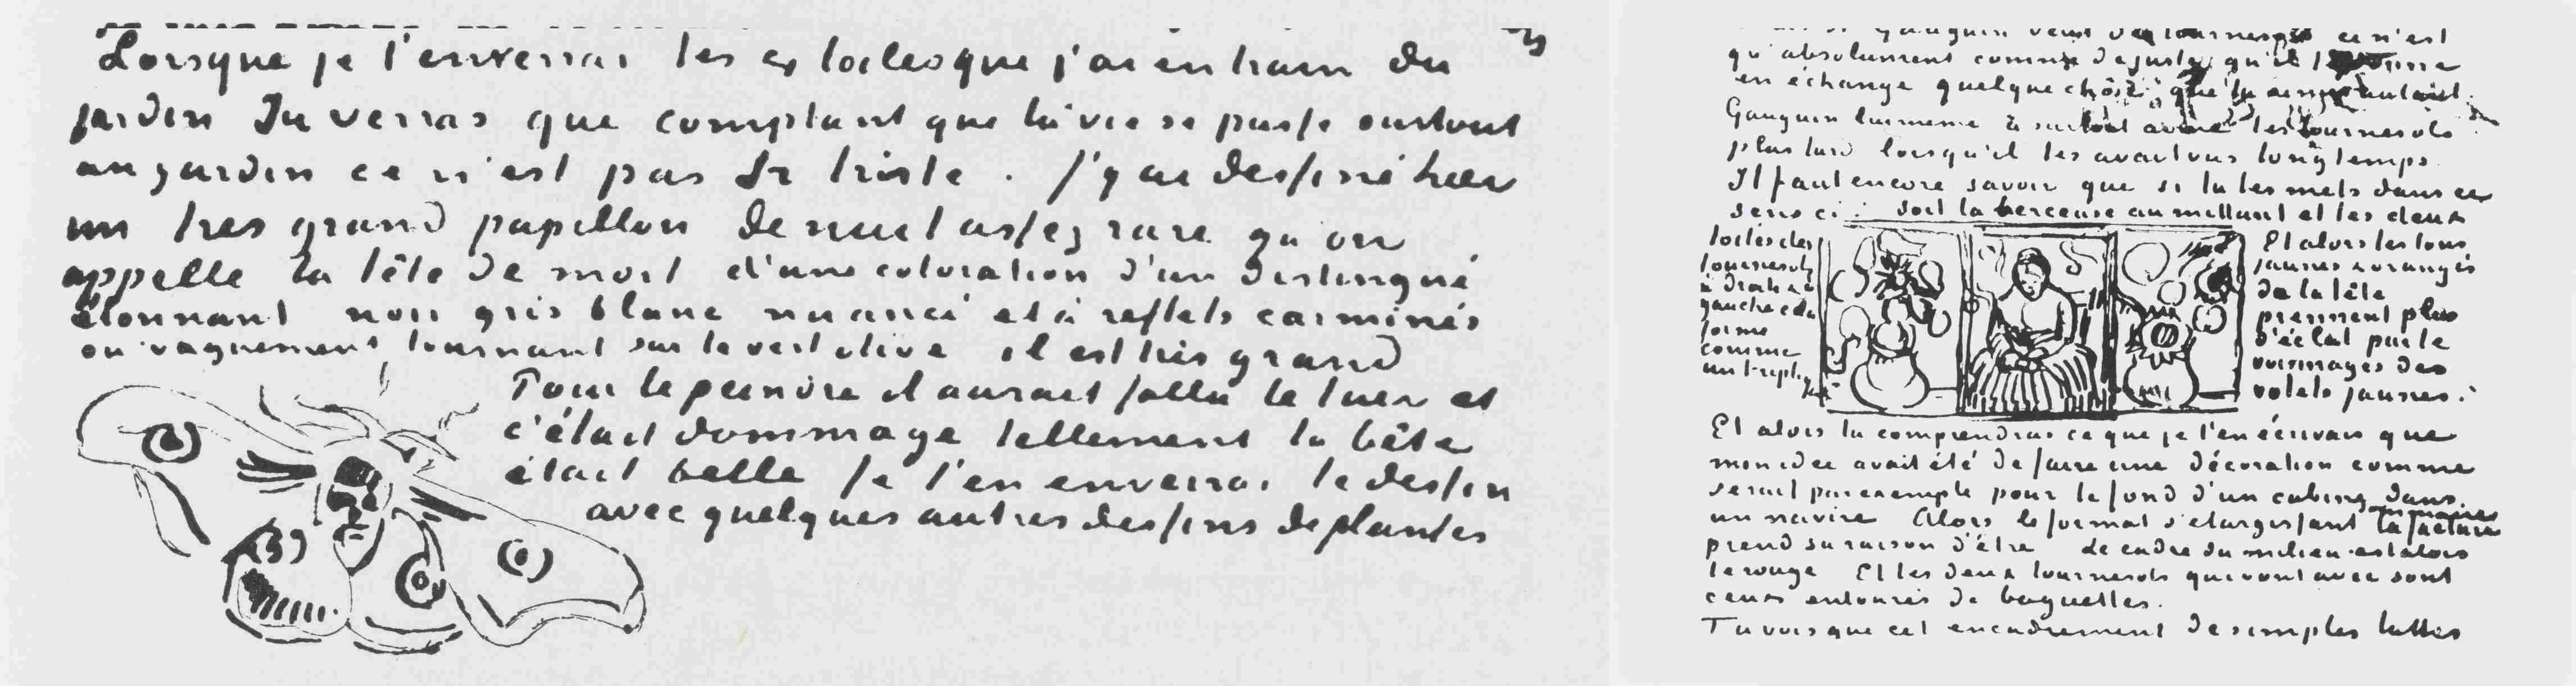 Lorsque je t'enverrai les 4 toiles que j'ai en train du
jardin Tu verras que comptant que la vie se passe surtout
au jardin ce n'est pas si triste. J'y ai dessiné hier
un très grand papillon de nuit assez rare qu'on
appelle la tête de mort d'une coloration d'un distingué
étonnant noir gris blanc nuancé et à reflets carminés
ou vaguement tournant sur le vert olive il est très grand
Pour le peindre il aurait fallu le tuer et
c'était dommage tellement la bête
était belle Je t'en enverrai le dessin
avec quelques autres dessins de plantes
Gauguin veut des tournesols ce n'est
qu'absolument comme de juste qu'il te donne
en échange quelque chose que tu aimes autant.
Gauguin lui même a surtout aimé les tournesols
plus tard lorsqu'il les avait vus longtemps.
Il faut encore savoir que si tu les mets dans ce
sens ci : soit la berceuse au millant et les deux
toiles des
tournesols
à droite &
gauche cela
forme
comme
un triptyque
Et alors les tons
jaunes & orangés
de la tête
prennent plus
d'éclat par le
voisinages des
volets jaunes.
Et alors tu comprendras ce que je t'en écrivais que
mon idée avait été de faire une décoration comme
serait par exemple pour le fond d'un cabine dans
un navire Alors le format s'élargissant la facture sommaire
prend sa raison d'être le cadre du milieu est alors
le rouge Et les deux tournesols qui vont avec sont
ceux entourés de baguettes.
Tu vois que cet encadrement de simples lattes